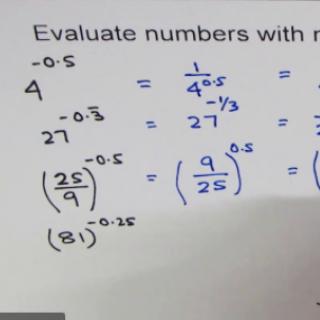 Evaluate numbers with
4^-0.5 = 1/4^0.5 =
27^-0.3̅ = 27^-1/3 =
(25/9)^-0.5 = (9/25)^0.5 = (
(81)^-0.25